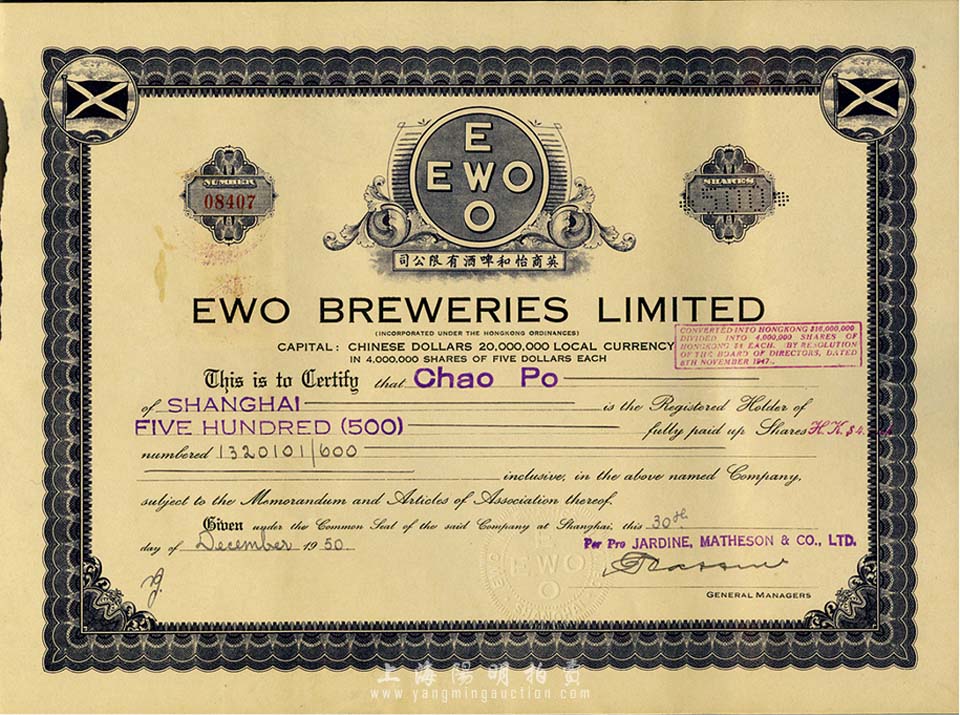 NUMBER
08407
E
EWO
O
SHARES
500
司公限有酒啤和怡商英
EWO BREWERIES LIMITED
(INCORPORATED UNDER THE HONGKONG ORDINANCES)
CAPITAL: CHINESE DOLLARS 20,000,000 LOCAL CURRENCY
IN 4,000,000 SHARES OF FIVE DOLLARS EACH
CONVERTED INTO HONGKONG $16,000,000
DIVIDED INTO 4,000,000 SHARES OF
HONGKONG $4 EACH. BY RESOLUTION
OF THE BOARD OF DIRECTORS, DATED
8TH NOVEMBER 1947.
This is to Certify that Chao Po
of SHANGHAI is the Registered Holder of
FIVE HUNDRED (500) fully paid up Shares H.K.$4.
numbered 1320101/600
inclusive, in the above named Company,
subject to the Memorandum and Articles of Association thereof.
Given under the Common Seal of the said Company at Shanghai, this 30th
day of December 1950.
Per Pro JARDINE, MATHESON & CO., LTD.
GENERAL MANAGERS
E
EWO
O
SHANGHAI
上海陽明拍賣
www.yangmingauction.com